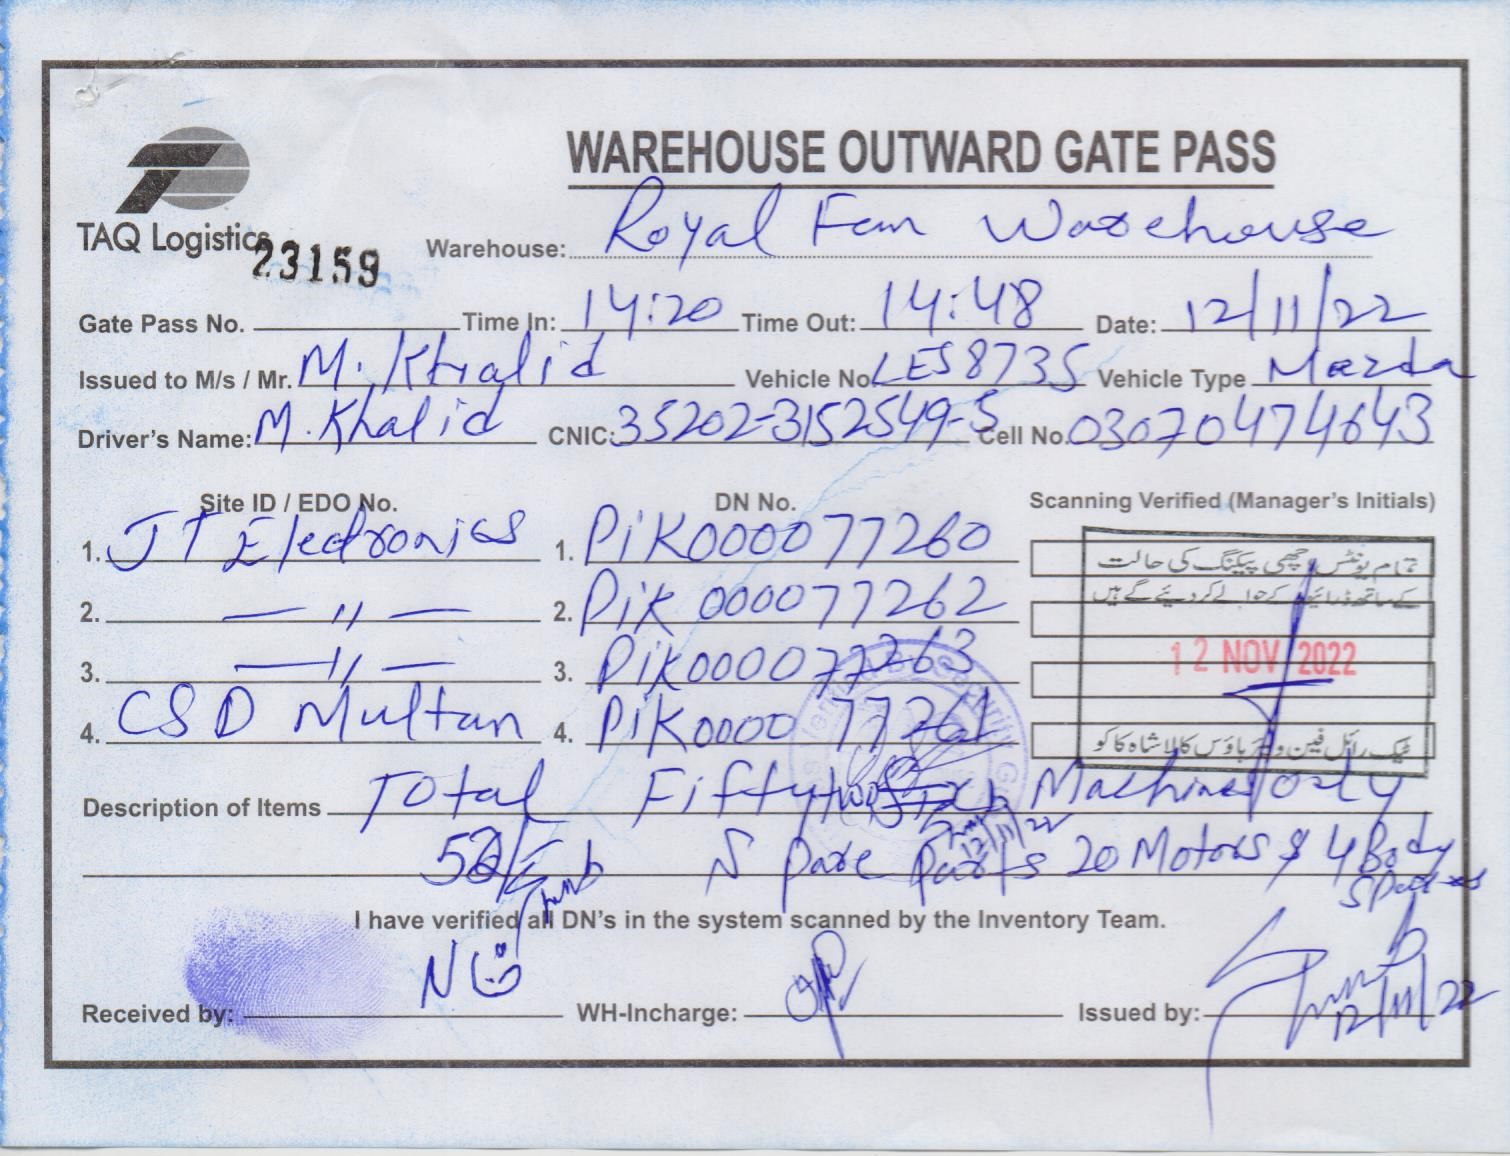 WAREHOUSE OUTWARD GATE PASS
TAQ Logistics
23159
Warehouse: Royal Fan Warehouse
Gate Pass No. Time In: 14:20 Time Out: 14:48 Date: 12/11/22
Issued to M/s / Mr. M. Khalid Vehicle No. LES 8735 Vehicle Type Mazda
Driver's Name: M. Khalid CNIC: 35202-3152549-5 Cell No. 03070474643
Site ID / EDO No. DN No. Scanning Verified (Manager's Initials)
1. JT Electronics 1. PiK000077260
2. — " — 2. PiK 000077262
3. — " — 3. PiK000077263
4. CSD Multan 4. PiK0000 77261
تمام یونٹس اچھی پیکنگ کی حالت
کے ساتھ ڈرائیور کے حوالے کر دیئے گئے ہیں
12 NOV 2022
ٹیک رائل فین ویئر ہاؤس کالا شاہ کاکو
Description of Items Total Fifty two Machines only
52 Spare Parts 20 Motors & 4 Body
12/11/22
I have verified all DN's in the system scanned by the Inventory Team.
Received by: WH-Incharge: Issued by:
12/11/22